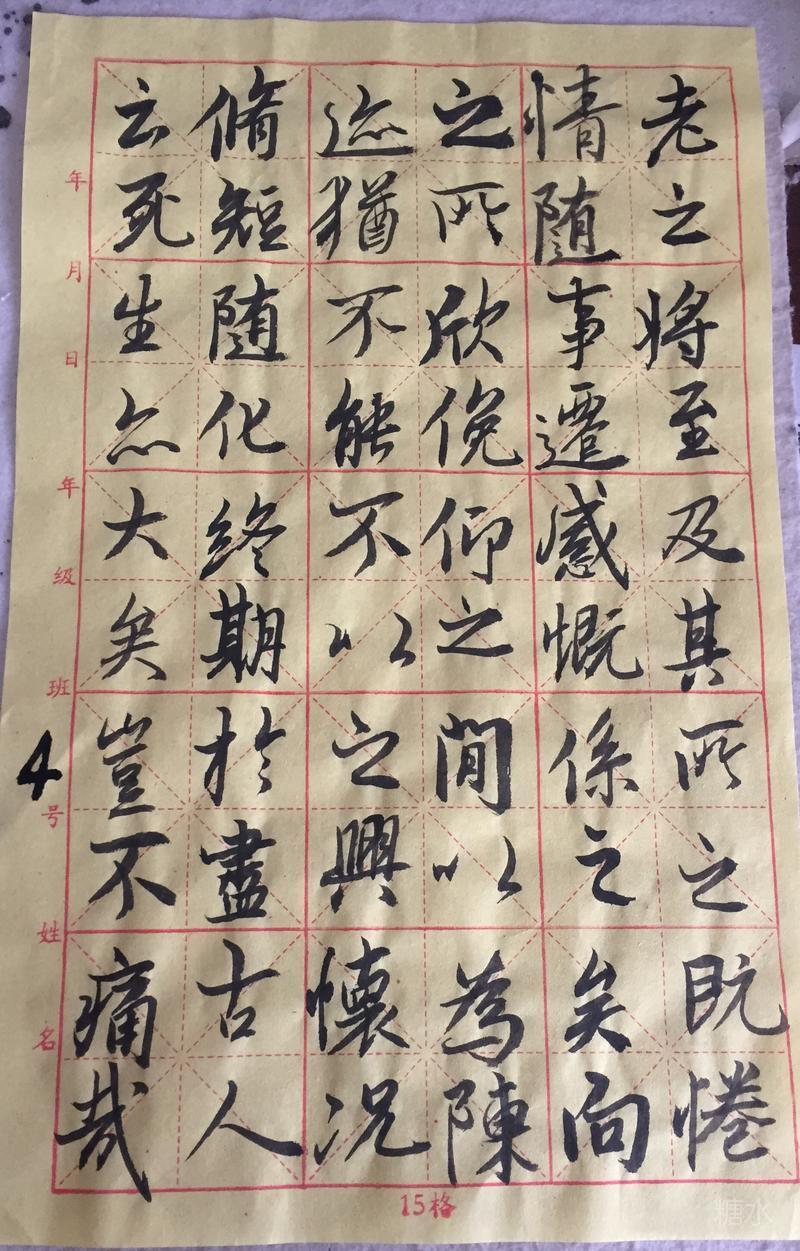 老之将至及其所之既惓
情随事遷感慨係之矣向
之所欣俛仰之間以為陳
迹猶不能不以之興懷况
脩短随化終期於盡古人
云死生亦大矣豈不痛哉
年
月
日
年
级
班
4
号
姓
名
15格
糖水